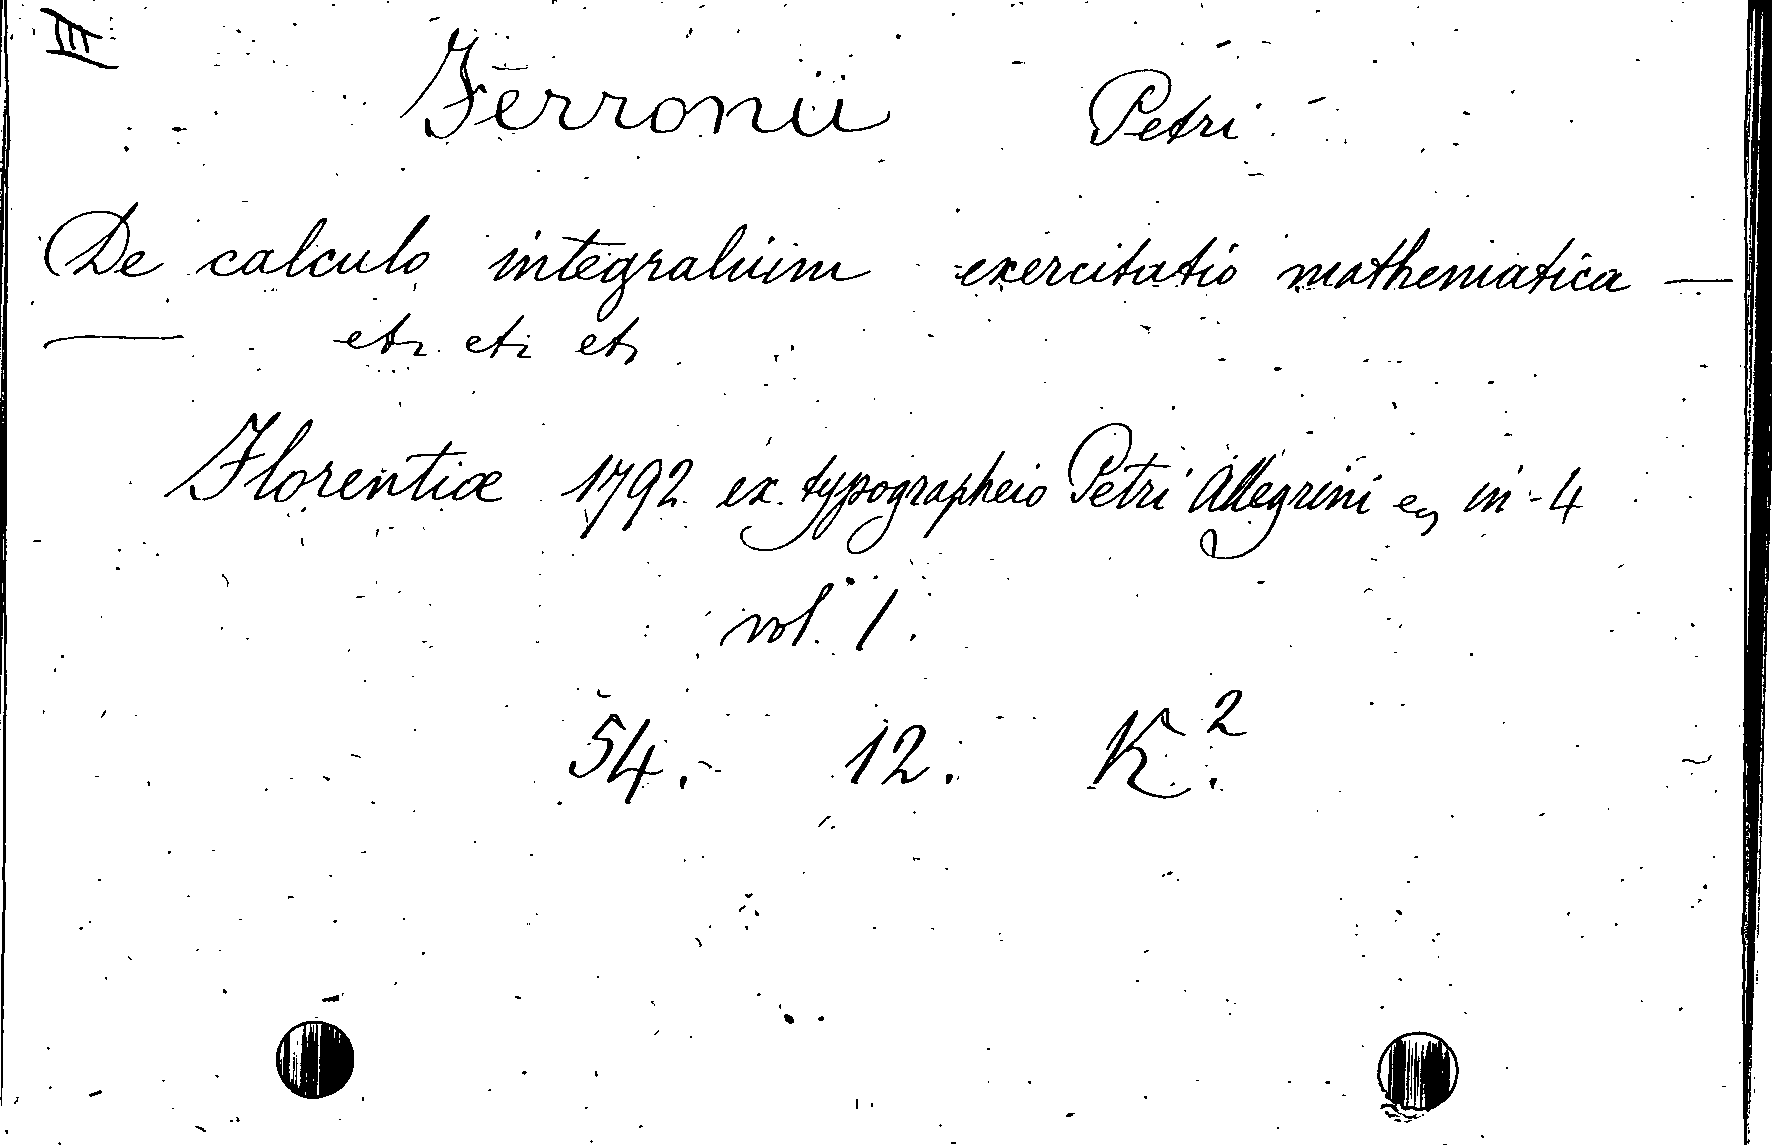 III
Ferronii Petri
De calculo integralium exercitatio mathematica —
— etc etc etc
Florentiæ 1792 ex typographeio Petri Allegrini in-4
vol. 1.
54. 12. K².